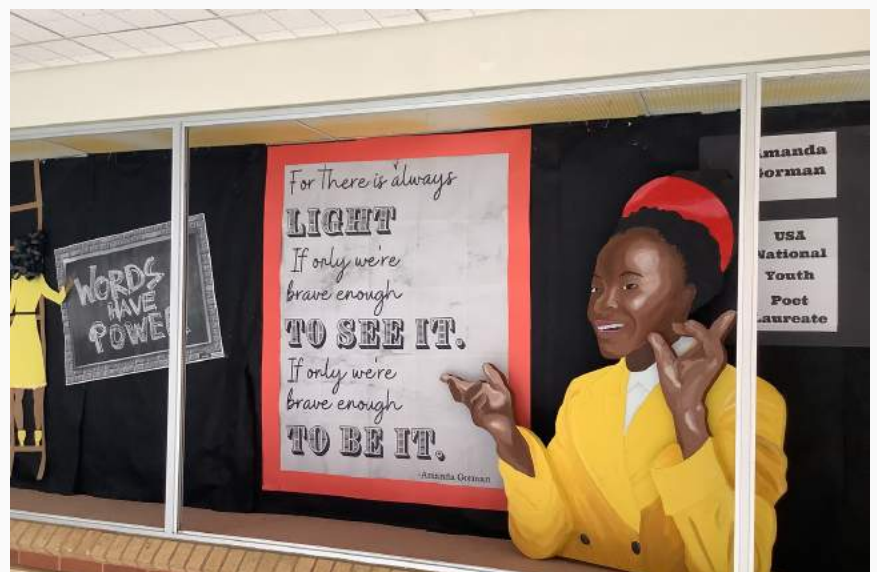 WORDS
HAVE
POWE
For there is always
LIGHT
If only we're
brave enough
TO SEE IT.
If only we're
brave enough
TO BE IT.
-Amanda Gorman
manda
orman
USA
National
Youth
Poet
Laureate